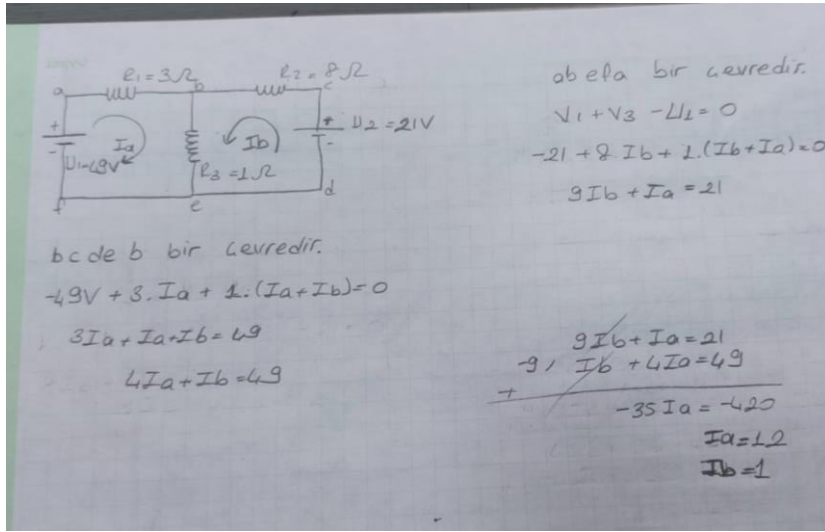 R1=3Ω
R2=8Ω
a
b
c
+
-
U1=49V
Ia
R3=1Ω
Ib
+
-
U2=21V
f
e
d
bcdeb bir çevredir.
-49V+3.Ia+1.(Ia+Ib)=0
3Ia+Ia+Ib=49
4Ia+Ib=49
abefa bir çevredir.
V1+V3-U1=0
-21+8.Ib+1.(Ib+Ia)=0
9Ib+Ia=21
9Ib+Ia=21
-9/ Ib+4Ia=49
+
-35Ia=-420
Ia=12
Ib=1